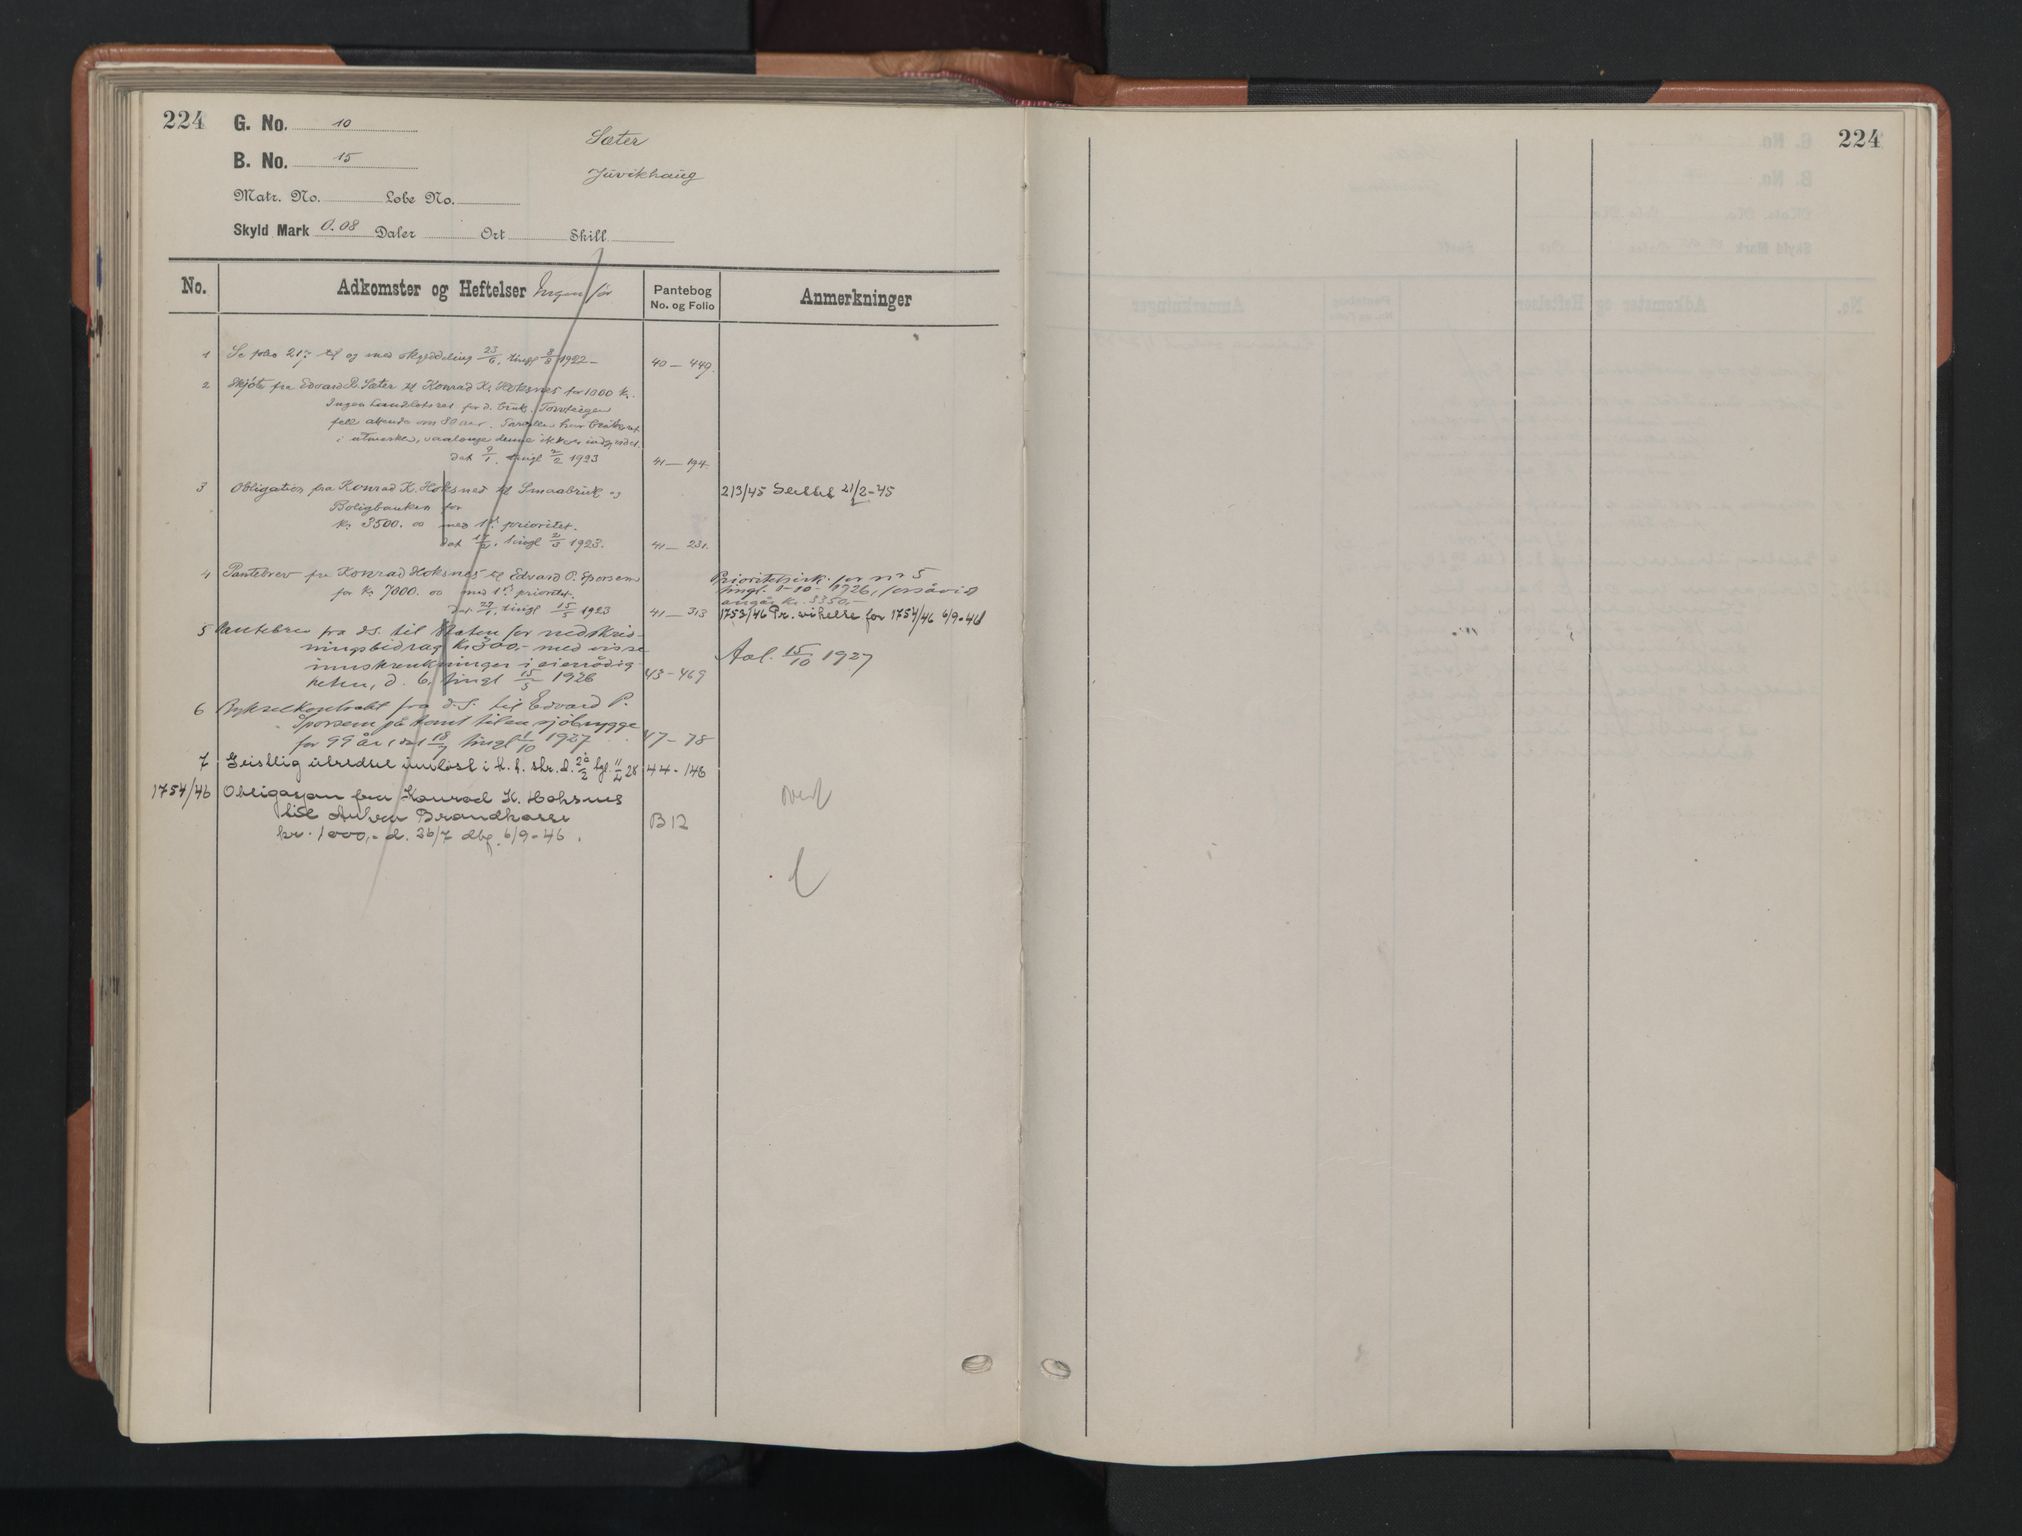 224
G. No. 10
B. No. 15
Sæter
Juvikhaug
Matr. No. Lobe No.
Skyld Mark 0.08 Daler Ort Skill
No.
Adkomster og Heftelser
Pantebog
No. og Folio
Anmerkninger
1 Se folio til og med skylddeling 23/6, tingl 3/8 1922 - 40 — 449.
2 Skjøte fra Edvard P. Sæter til Konrad K. Hoksnes for 1000 kr.
Ingen for d. bruk.
i utmarka, saalenge denne ikke er indgjerdet.
dat 9/1, tingl 2/2 1923 41 — 194.
3 Obligation fra Konrad K. Hoksnes til Smaabruk og
Boligbanken for
kr 3500.00 med 1st prioritet.
dat 17/2, tingl 2/3 1923. 41 — 231.
213/45 Slettet 21/2-45
4 Pantebrev fra Konrad Hoksnes til Edvard P. Sporsem
for kr 7000.00 med 1st prioritet.
dat 27/4, tingl 15/5 1923 41 — 313
Prioritetsvik. for nr 5
tingl. 1926, forsåvid
angår kr. 3350,-
1753/46 Pr. vikelse for 1754/46 6/9-46
5 Pantebrev fra d.s. til Staten for nedskriv-
ningsbidrag kr 500,- med visse
innskrenkninger i eierrådig-
heten, d. 6, tingl 15/5 1926 43 - 469
Avl. 15/10 1927
6 Bykselkontrakt fra d.s. til Edvard P.
Sporsem på tomt til en sjøbrygge
for 99 år, dat 18/7 tingl 1/10 1927 47 - 78
7 Geistlig utredsel innløst i h. h. skr. d. 20/2 tgl. 28 44 - 146
1754/46 Obligasjon fra Konrad K. Hoksnes
til Brandkasse
kr. 1000,- d. 26/7 dbf. 6/9-46.
B 12
224